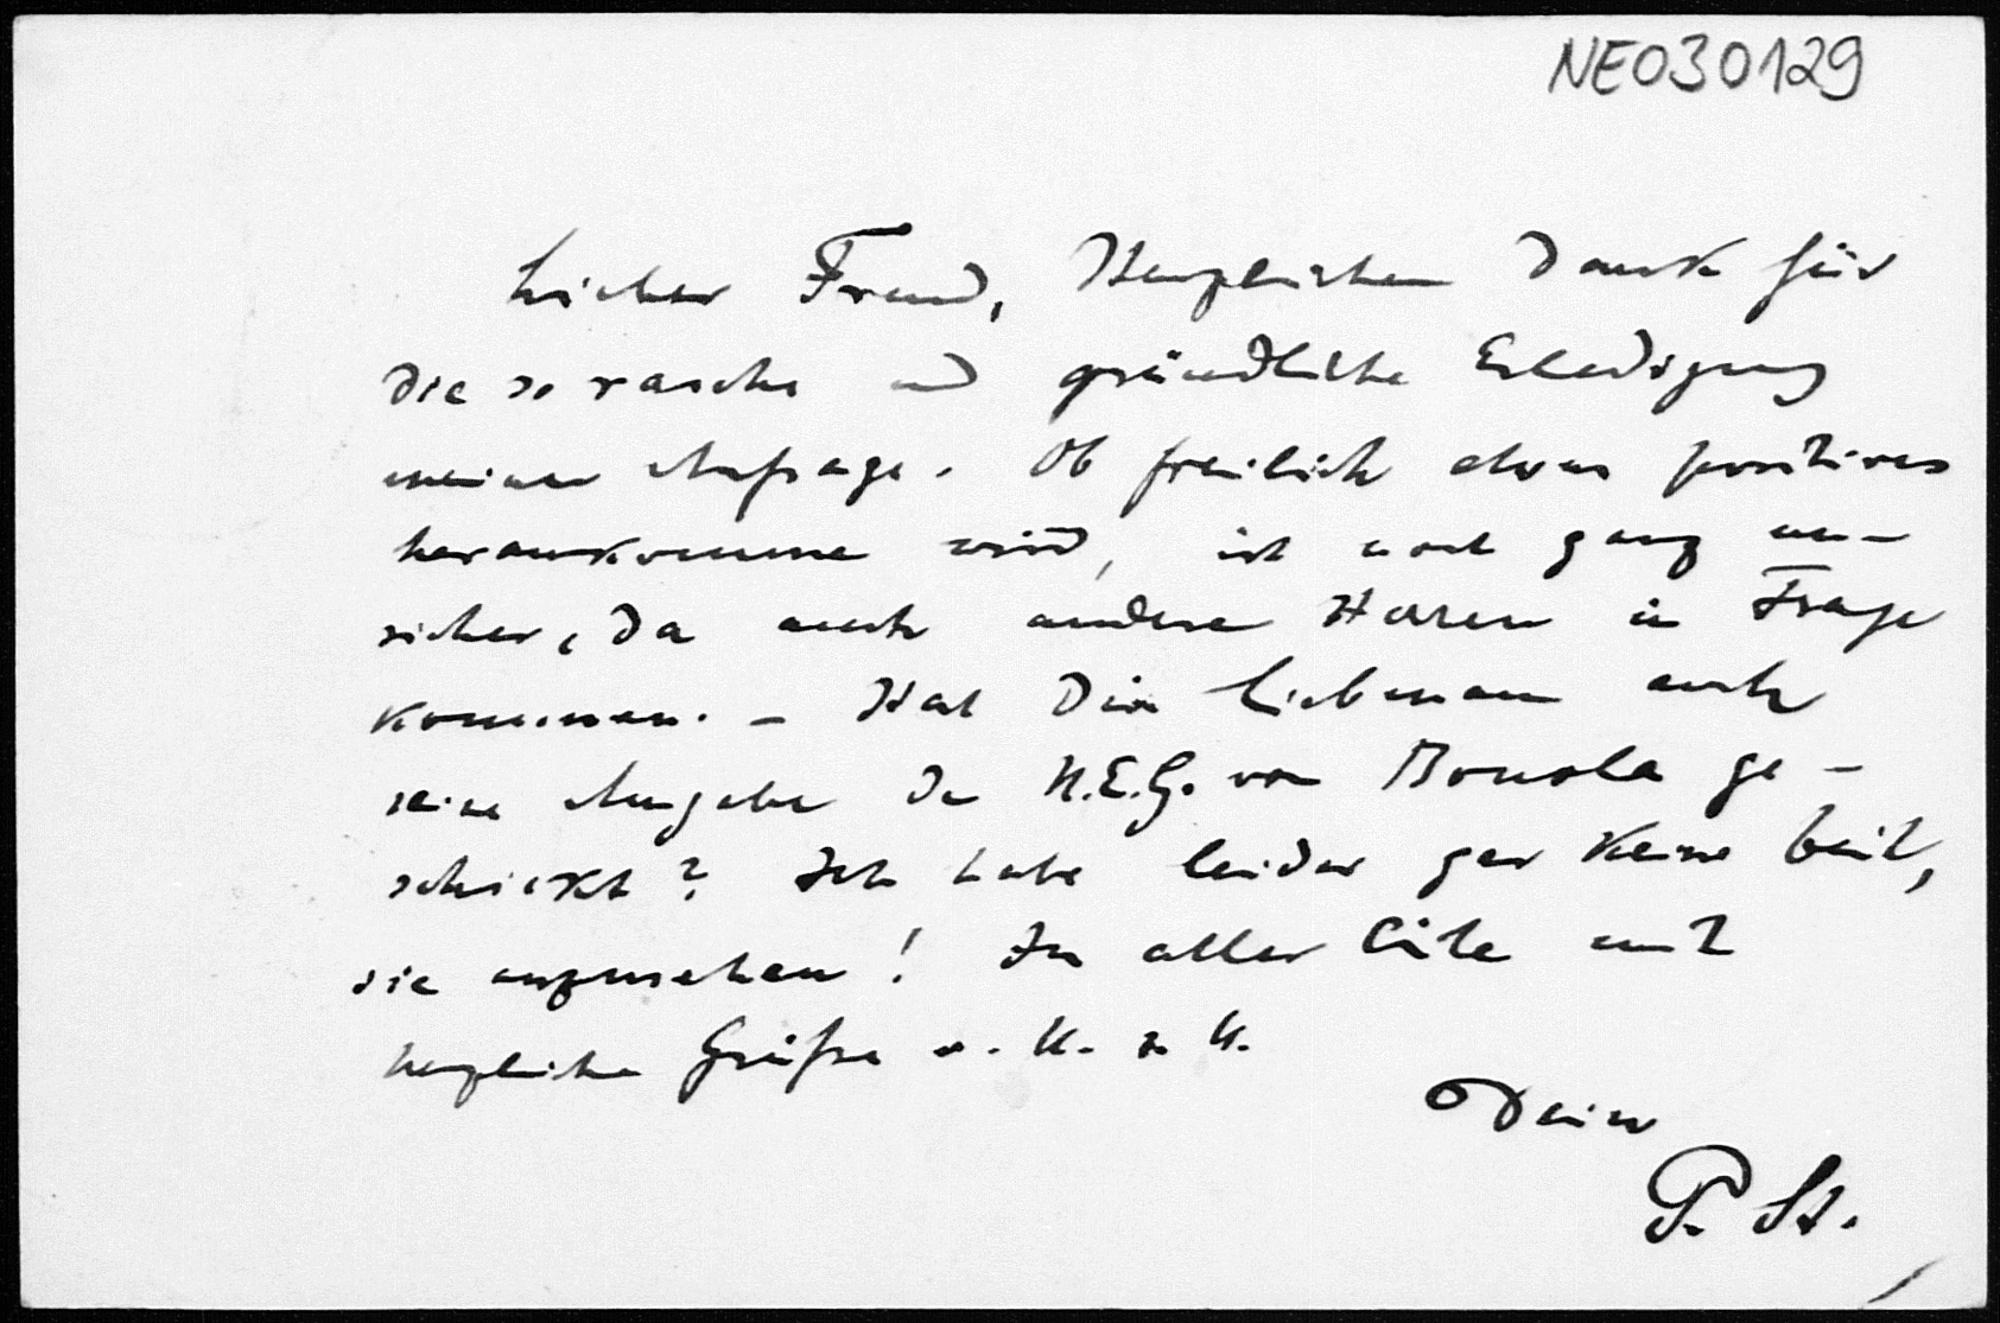 NE030129
Lieber Freund, Herzlichen Dank für
die so rasche und gründliche Erledigung
meiner Anfrage. Ob freilich etwas positives
herauskomme wird, ist noch ganz un-
sicher, da auch andere Herren in Frage
kommen. - Hat Dir Liebmann auch
seine Ausgabe der N.E.G. von Bonola ge-
schickt? Ich habe leider gar keine Zeit,
sie anzusehen! In aller Eile mit
herzliche Grüße v. H. z. H.
Dein
P. St.